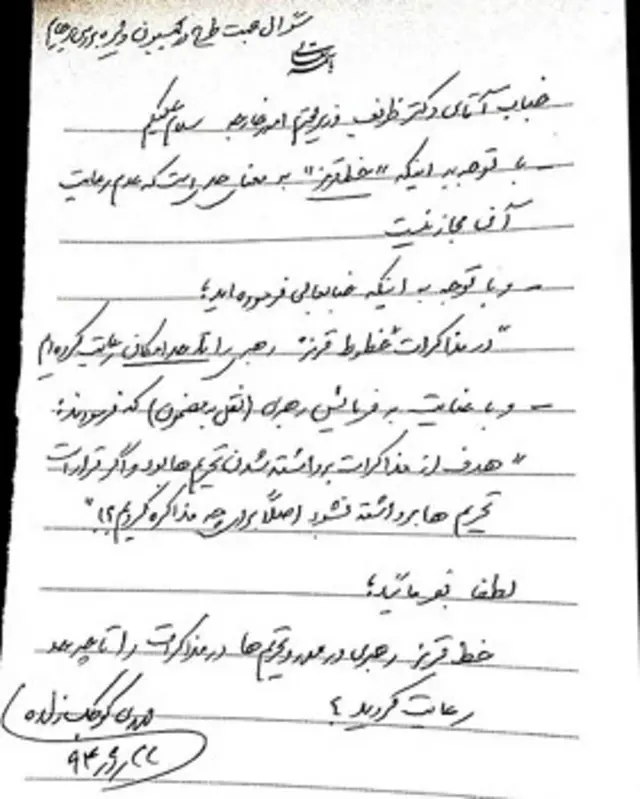 سؤال جهت طرح در کمیسیون ویژه بررسی برجام
بسمه تعالی
جناب آقای دکتر ظریف وزیر محترم امور خارجه سلام علیکم
- با توجه به اینکه "خط قرمز" به معنای حدی است که عدم رعایت
آن مجاز نیست
- و با توجه به اینکه جنابعالی فرموده اید؛
"در مذاکرات خطوط قرمز رهبری را تا حد امکان رعایت کرده ایم"
- و با عنایت به فرمایش رهبری (نقل به مضمون) که فرمودند:
"هدف از مذاکرات برداشته شدن تحریم ها بود و اگر قرار است
تحریم ها برداشته نشود اصلاً برای چه مذاکره کردیم؟!"
لطفا بفرمائید؛
خط قرمز رهبری در مورد تحریم ها در مذاکرات را تا چه حد
رعایت کردید؟
مهدی کوچک زاده
۹۴٫۶٫۲۲